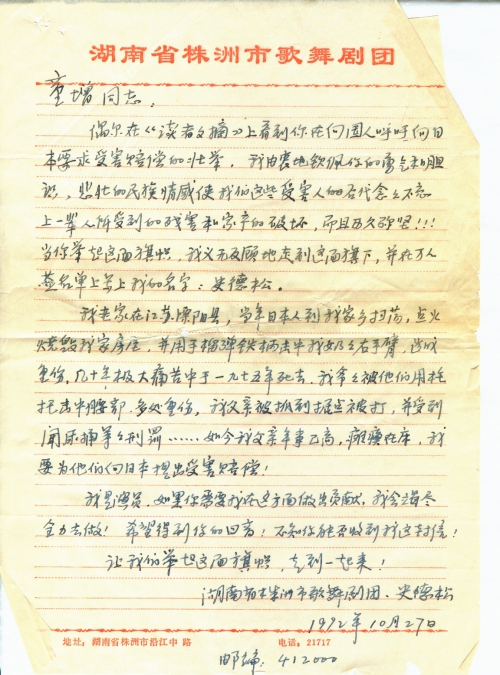 湖南省株洲市歌舞剧团
童增同志：
偶尔在《读者文摘》上看到你在向国人呼吁向日
本要求受害赔偿的壮举，我由衷地钦佩你的勇气和胆
识，悲壮的民族情感使我们这些受害人的后代念念不忘
上一辈人所受到的残害和家产的破坏，而且历久弥坚!!!
当你举起这面旗帜，我义无反顾地走到这面旗下，并在万人
签名单上写上我的名字：史德松。
我老家在江苏溧阳县，当年日本人到我家乡扫荡，点火
烧毁我家房屋，并用手榴弹铁柄击中我奶奶右手臂，造成
重伤，几十年极大痛苦中于一九七五年死去，我爷爷被他们用枪
托击中腰部，多处重伤，我父亲被抓到据点被打，并受到
等刑罚……如今我父亲年事已高，瘫痪在床，我
要为他们向日本提出受害赔偿！
我是演员，如果你需要我在这方面做出贡献，我会竭尽
全力去做！希望得到你的回音！不知你能否收到我这封信！
让我们举起这面旗帜 走到一起来！
湖南省株洲市歌舞剧团、史德松
1992年10月27日
地址：湖南省株洲市沿江中路 电话：21717
邮编：412000